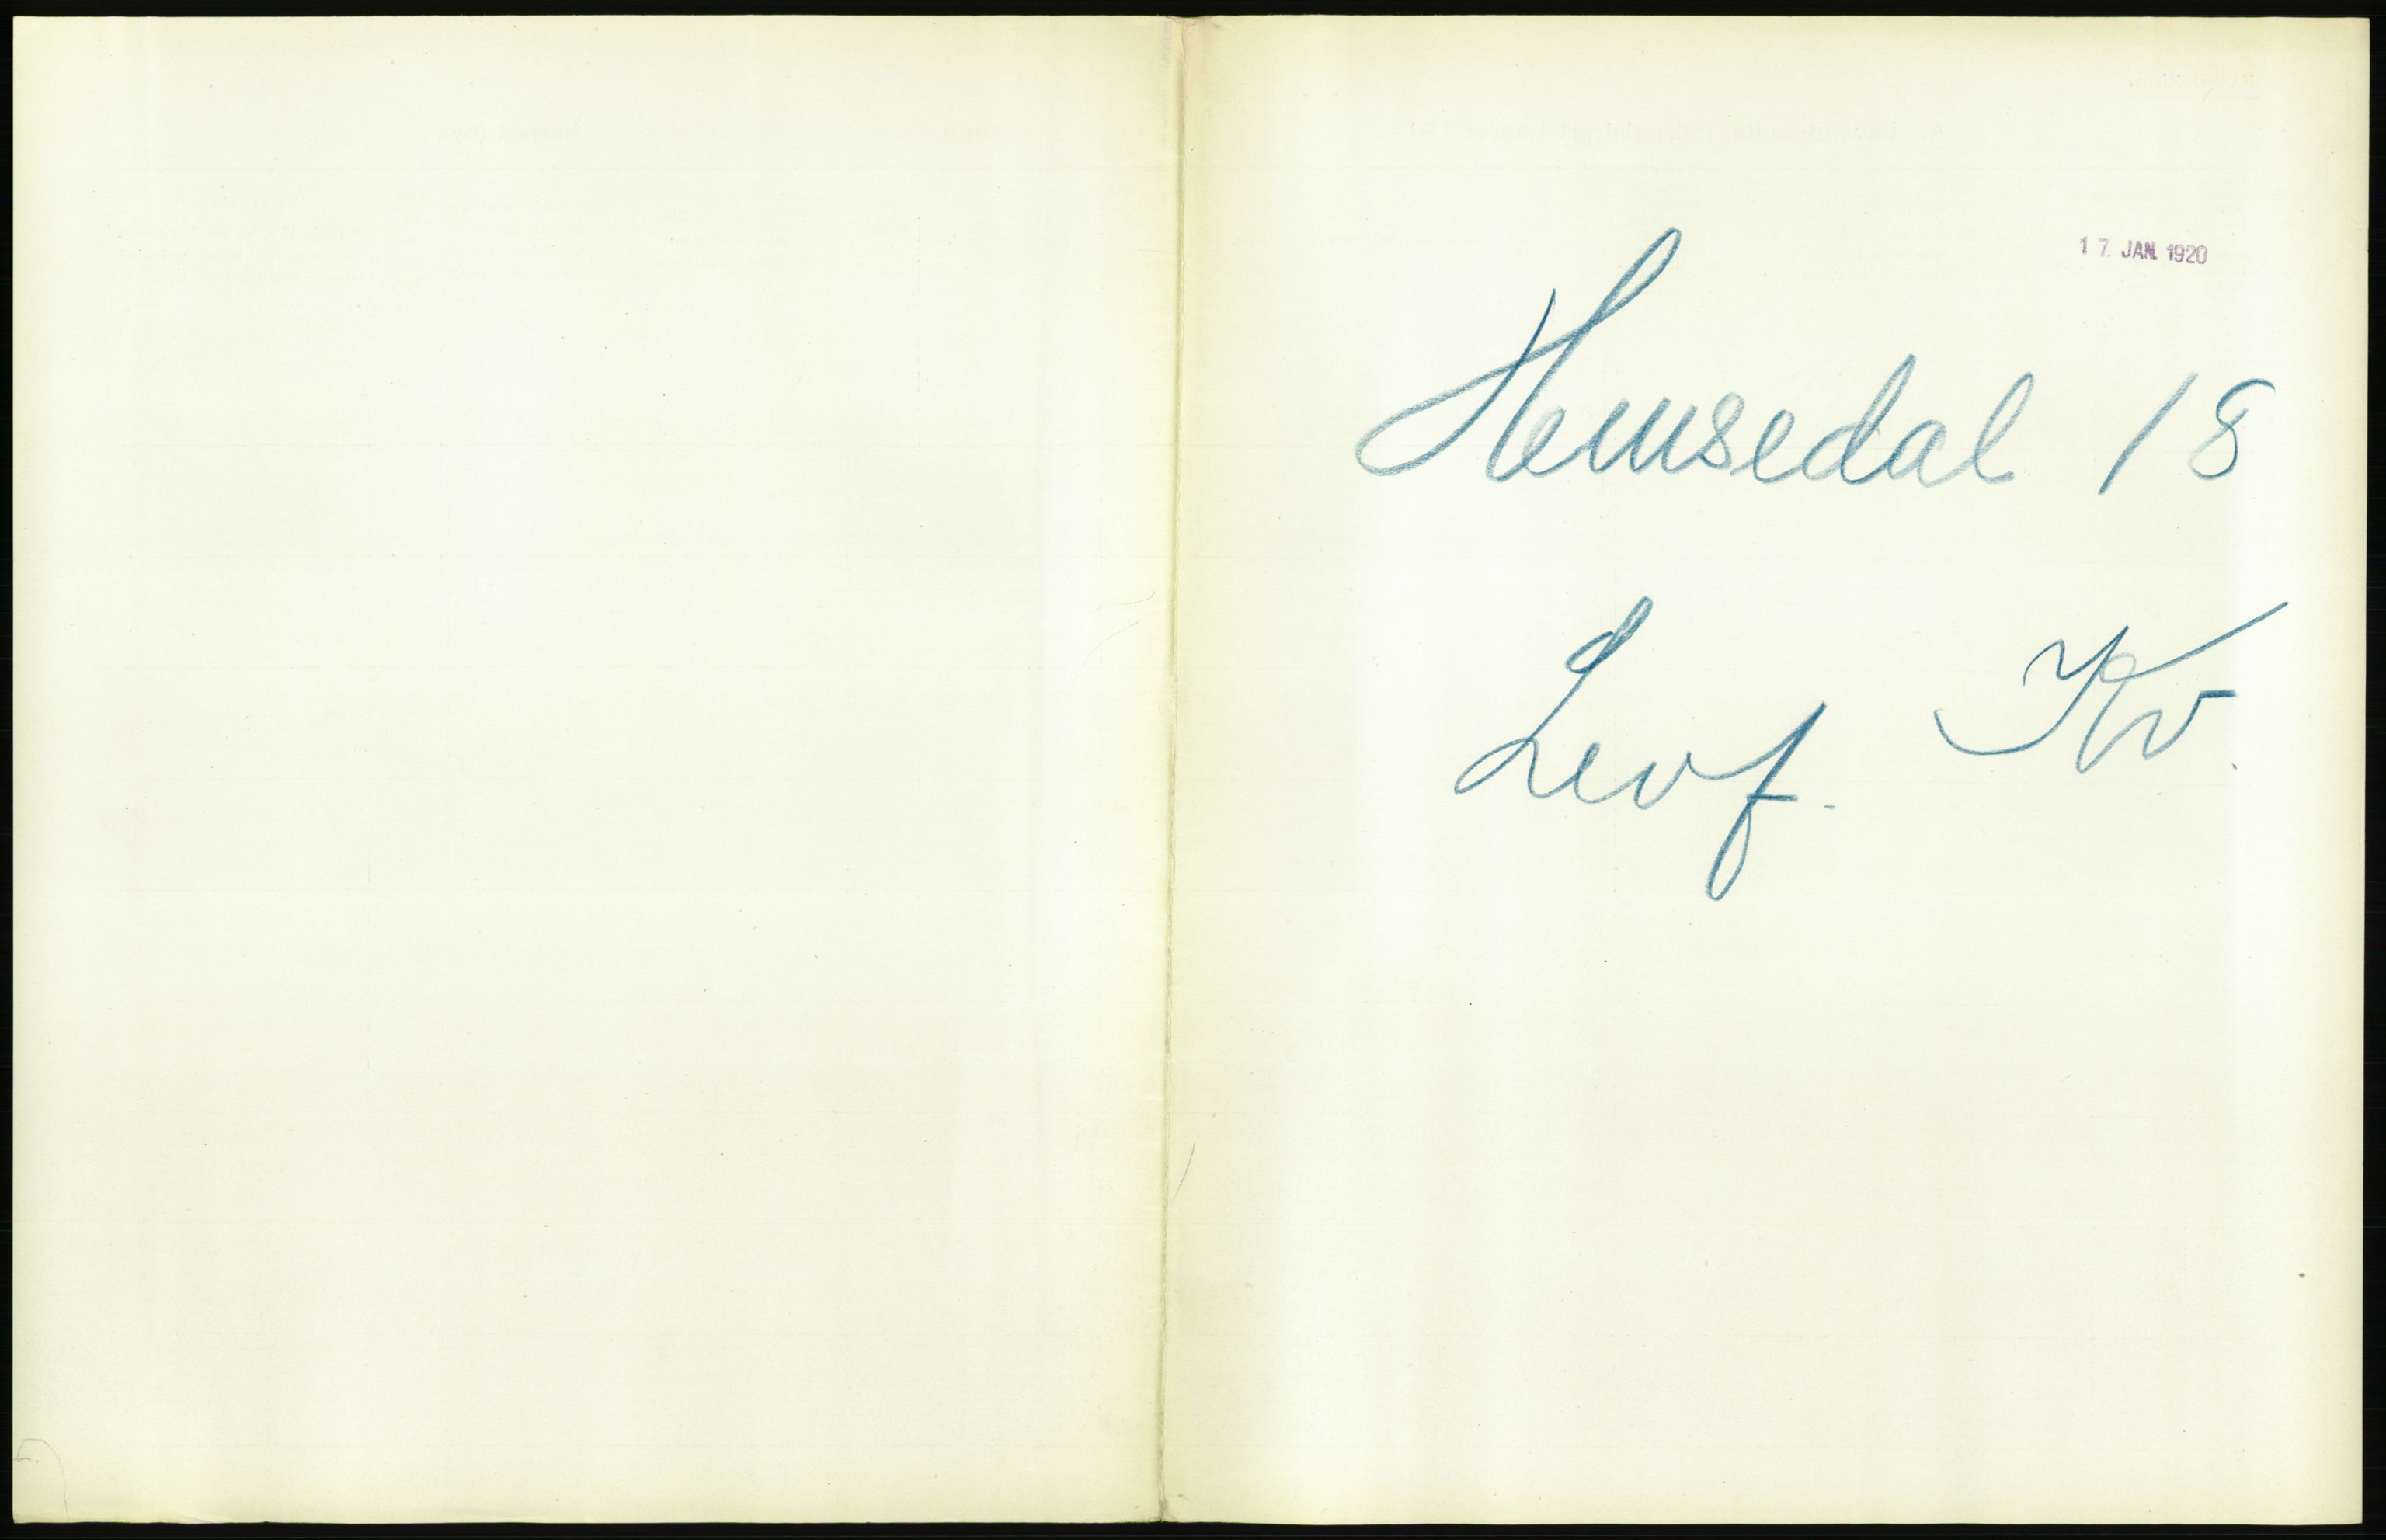 17. JAN. 1920
Hemsedal 18
Levf. Kv.